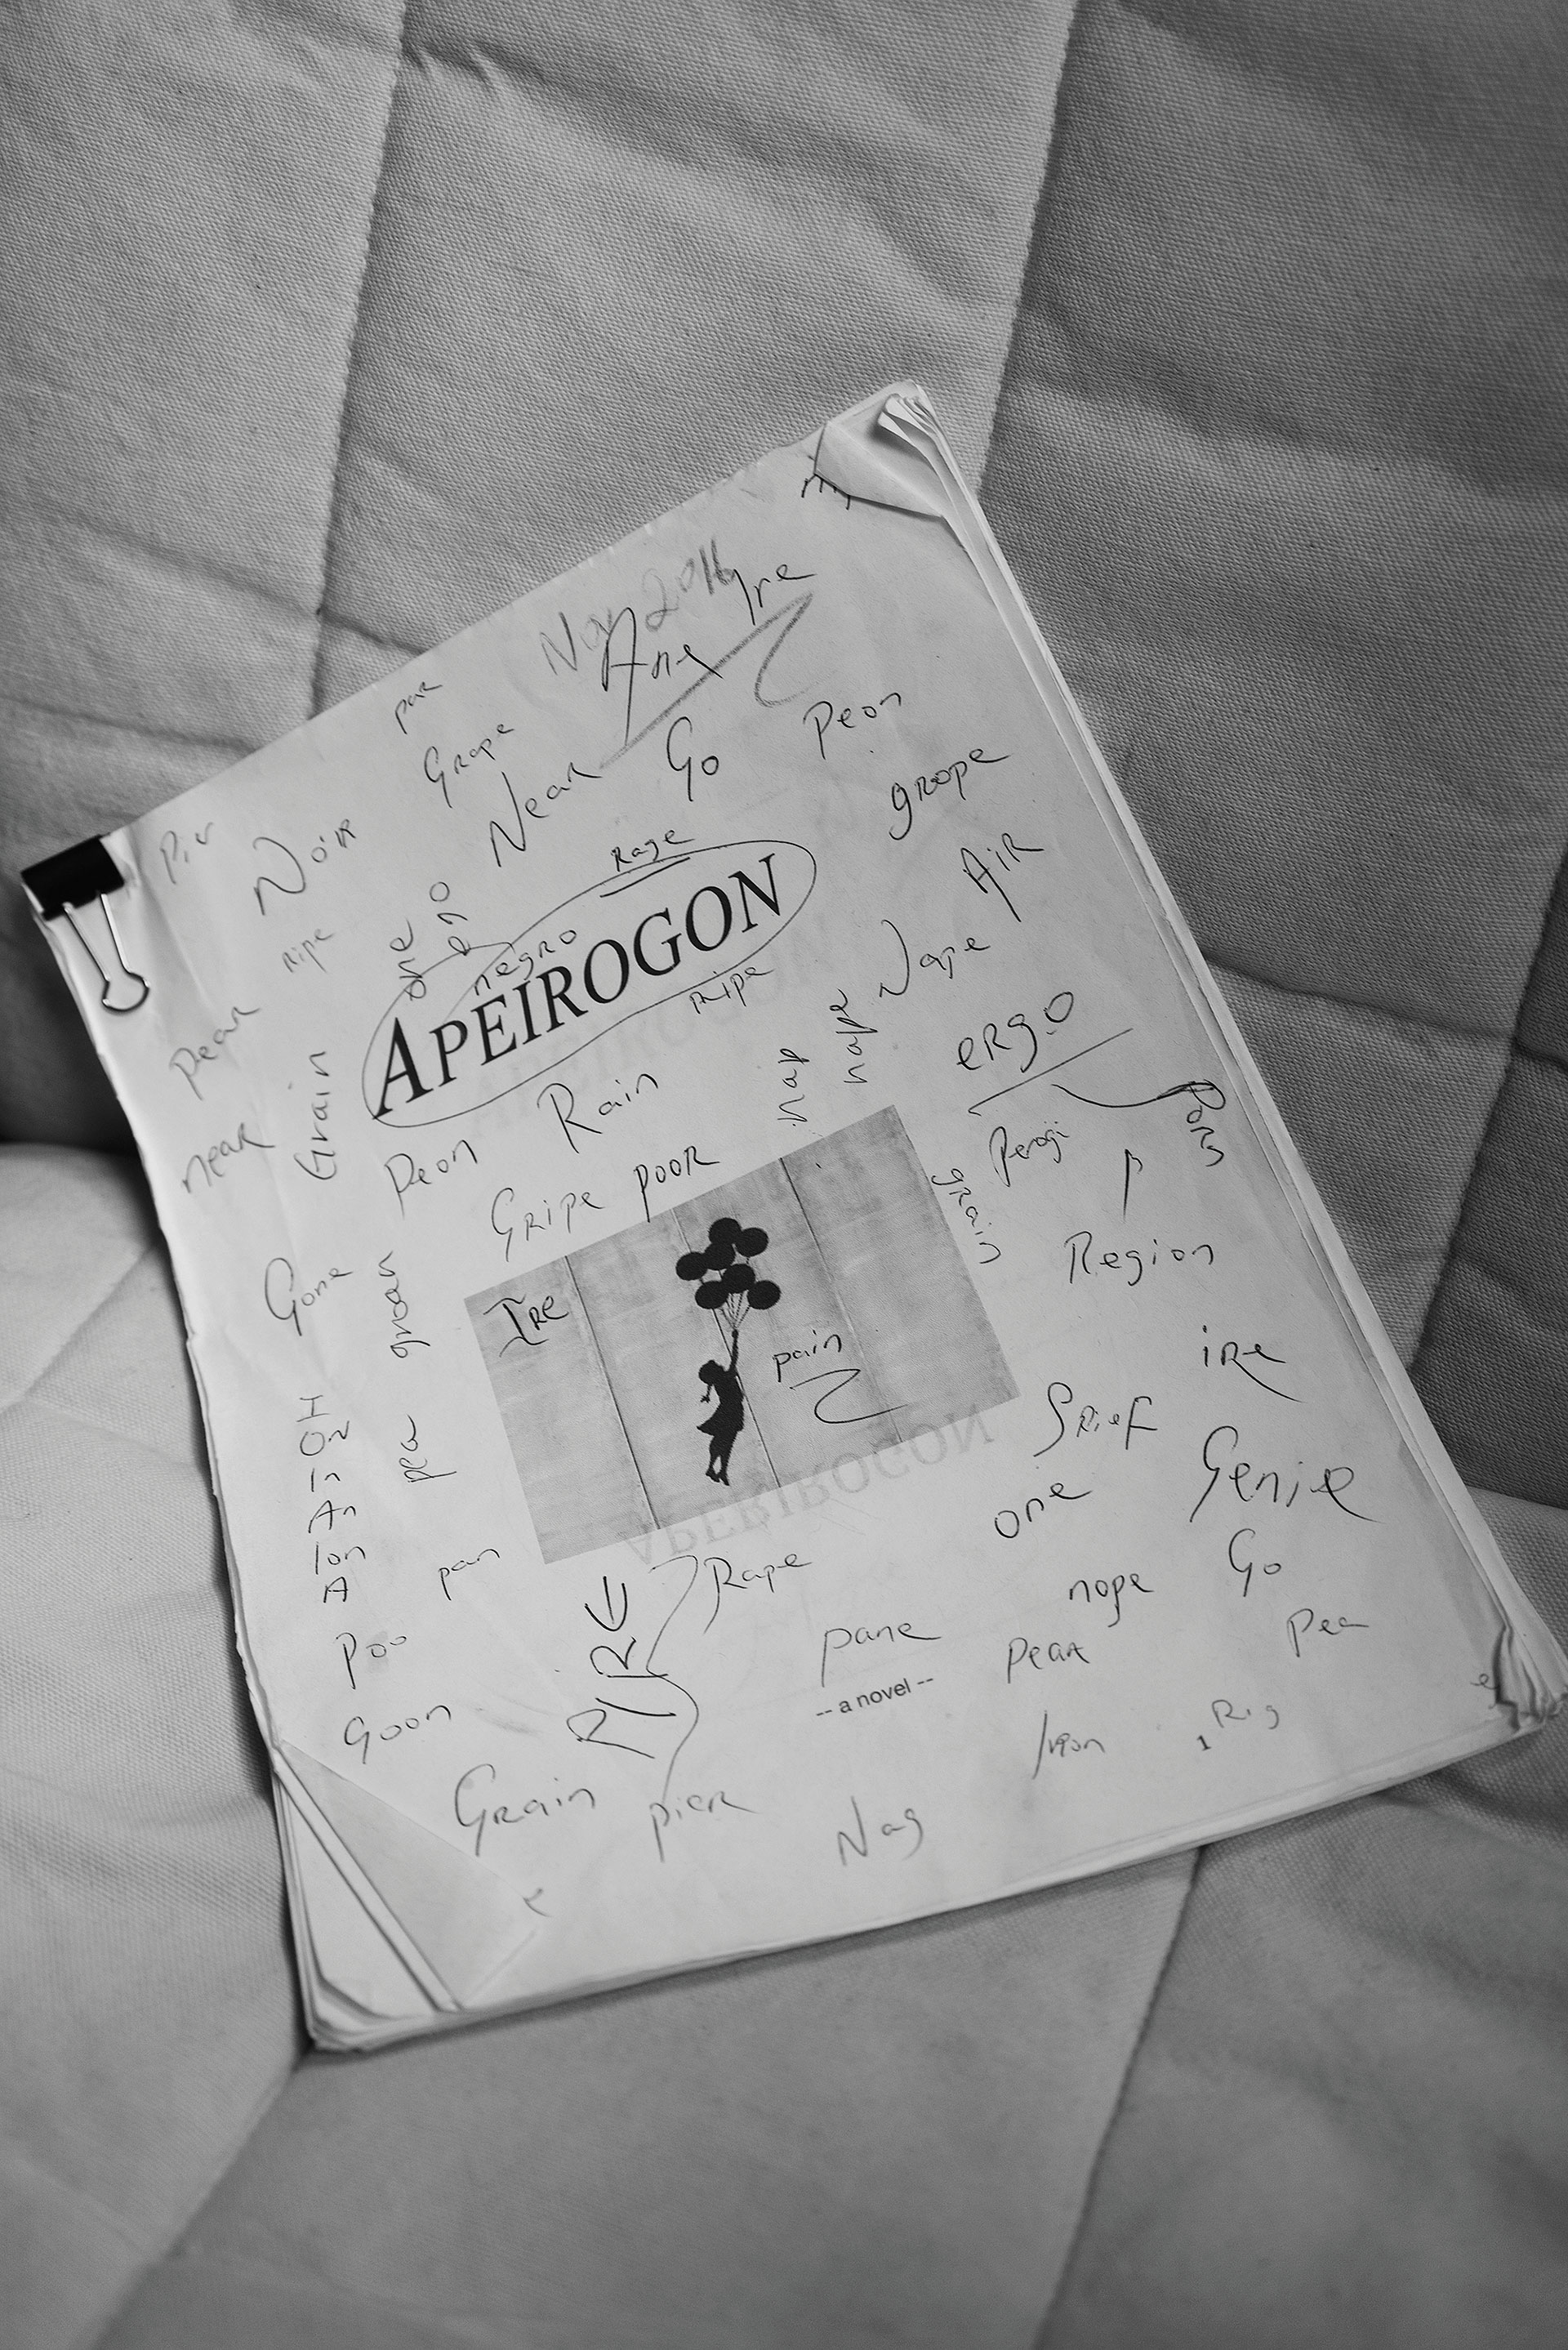 Nov 2016
Ire
par
Grape
Near
Go
Peon
grope
Noir
Rage
AIR
ripe
one
ego
negro
APEIROGON
ripe
Nape
nape
nap
ergo
pear
near
Grain
Peon
Rain
Gripe poor
grain
Perogi
Porn
Region
Gone
groan
Ire
pain
ire
Grief
OH
On
In
An
Ion
A
pea
pan
APEIROGON
one
Genie
Go
nope
Rape
PYRE
Poo
pane
-- a novel --
pear
Pea
Goon
Iron
Rig
Grain
pier
Nag